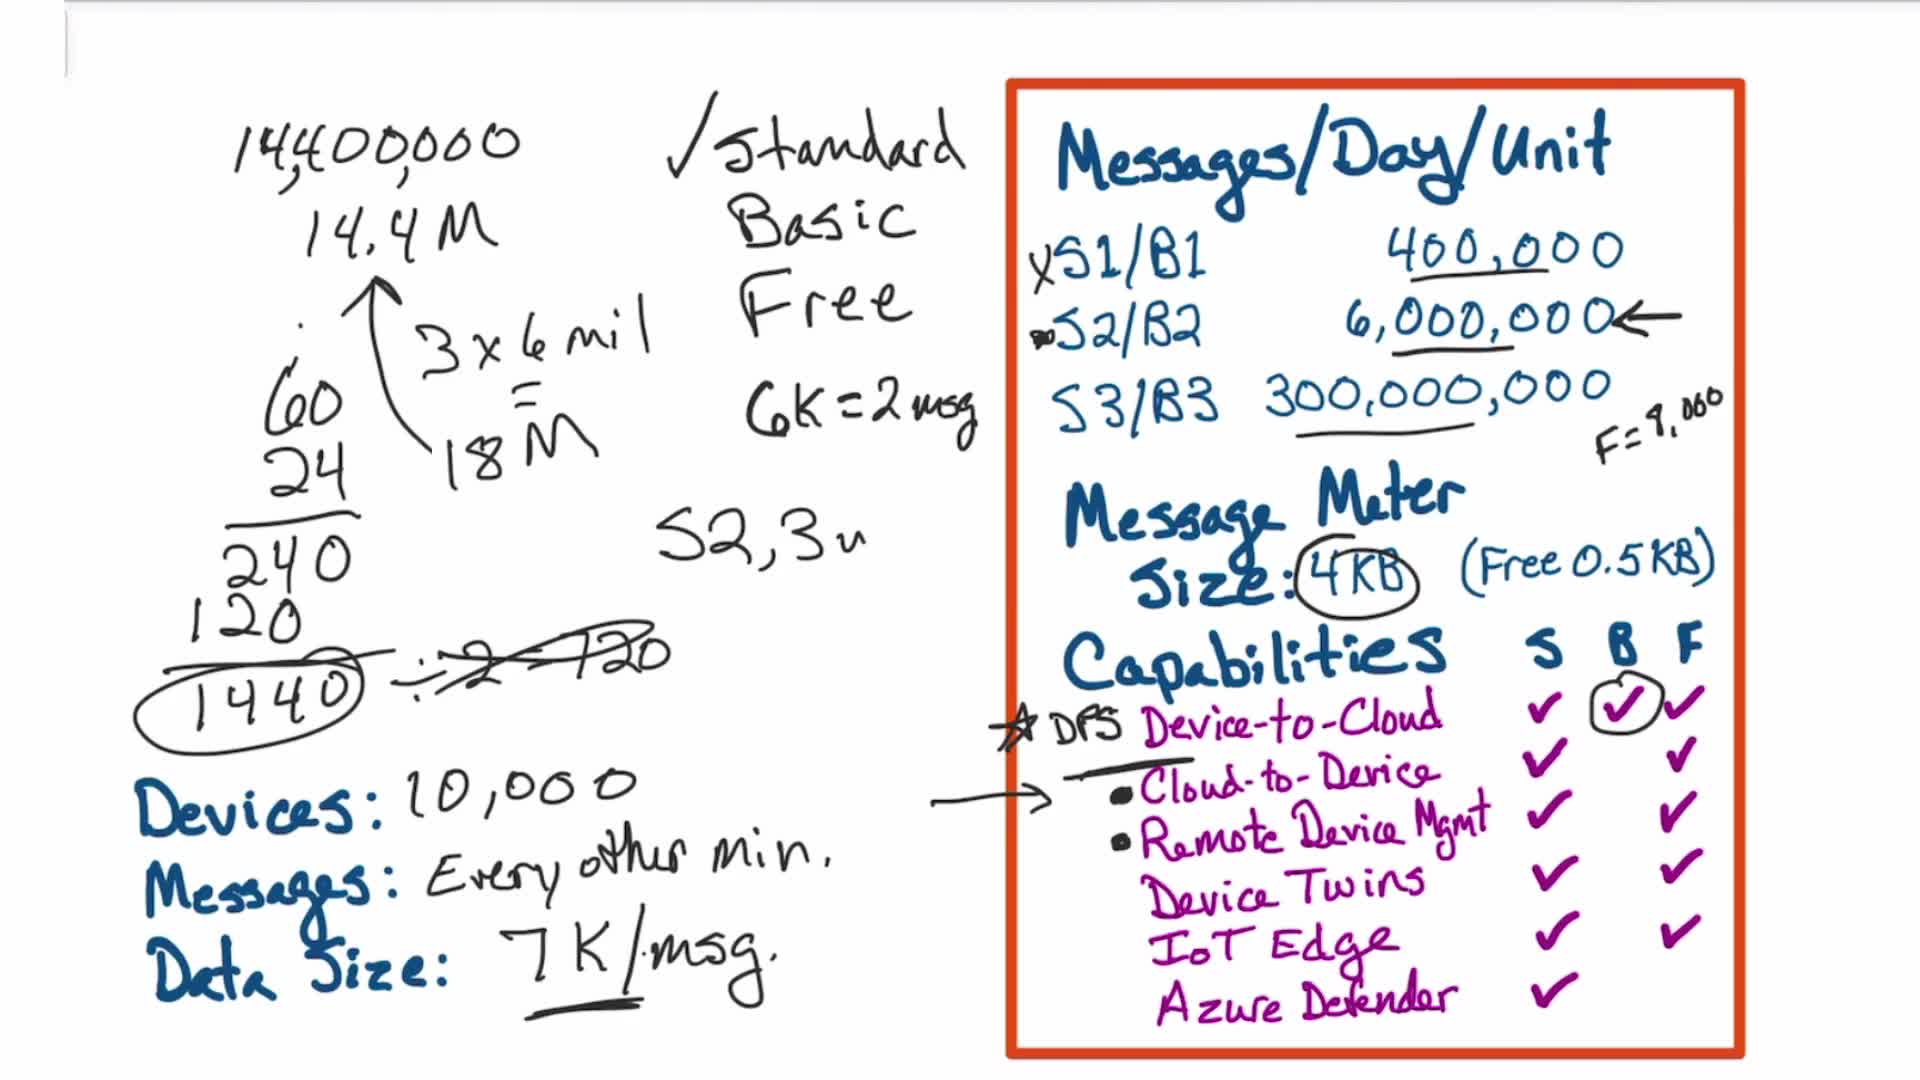 14,400,000
14.4 M
3 x 6 mil
=
18 M
60
24
240
120
1440 ÷ 2 = 720
Devices: 10,000
Messages: Every other min.
Data Size: 7K/msg.
✓ Standard
Basic
Free
6K = 2 msg
S2, 3u
Messages/Day/Unit
X S1/B1 400,000
S2/B2 6,000,000 ←
S3/B3 300,000,000
F = 8,000
Message Meter
Size: 4KB (Free 0.5KB)
Capabilities S B F
DPS Device-to-Cloud ✓ ✓ ✓
• Cloud-to-Device ✓ ✓
• Remote Device Mgmt ✓ ✓
Device Twins ✓ ✓
IoT Edge ✓ ✓
Azure Defender ✓